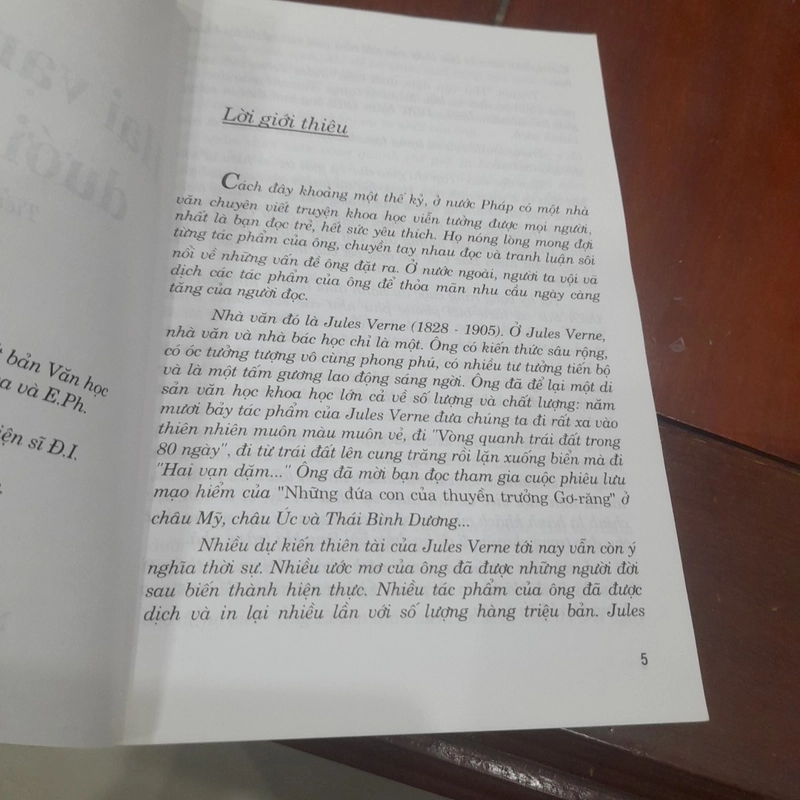 ai vạn
dưới
Tiể
t bản Văn học
a và E.Ph.
iện sĩ Đ.I.
Lời giới thiêu
Cách đây khoảng một thế kỷ, ở nước Pháp có một nhà
văn chuyên viết truyện khoa học viễn tưởng được mọi người,
nhất là bạn đọc trẻ, hết sức yêu thích. Họ nóng lòng mong đợi
từng tác phẩm của ông, chuyền tay nhau đọc và tranh luận sôi
nổi về những vấn đề ông đặt ra. Ở nước ngoài, người ta vội vã
dịch các tác phẩm của ông để thỏa mãn nhu cầu ngày càng
tăng của người đọc.
Nhà văn đó là Jules Verne (1828 - 1905). Ở Jules Verne,
nhà văn và nhà bác học chỉ là một. Ông có kiến thức sâu rộng,
có óc tưởng tượng vô cùng phong phú, có nhiều tư tưởng tiến bộ
và là một tấm gương lao động sáng ngời. Ông đã để lại một di
sản văn học khoa học lớn cả về số lượng và chất lượng: năm
mươi bảy tác phẩm của Jules Verne đưa chúng ta đi rất xa vào
thiên nhiên muôn màu muôn vẻ, đi "Vòng quanh trái đất trong
80 ngày", đi từ trái đất lên cung trăng rồi lặn xuống biển mà đi
"Hai vạn dặm..." Ông đã mời bạn đọc tham gia cuộc phiêu lưu
mạo hiểm của "Những đứa con của thuyền trưởng Gơ-răng" ở
châu Mỹ, châu Úc và Thái Bình Dương...
Nhiều dự kiến thiên tài của Jules Verne tới nay vẫn còn ý
nghĩa thời sự. Nhiều ước mơ của ông đã được những người đời
sau biến thành hiện thực. Nhiều tác phẩm của ông đã được
dịch và in lại nhiều lần với số lượng hàng triệu bản. Jules
5